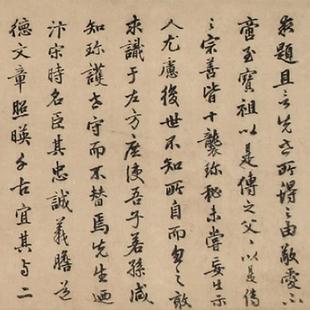 題且言先世所得之由敬愛不
啻至寶祖以是傳之父父以是傳
之宗善皆十襲珎秘未嘗妄出示
人尤慮後世不知所自而忽之敢
求識于左方庶使吾子若孫咸
知珎護世守而不替焉先生迺
汴宋時名臣其忠誠義膽道
德文章照暎千古宜其与二